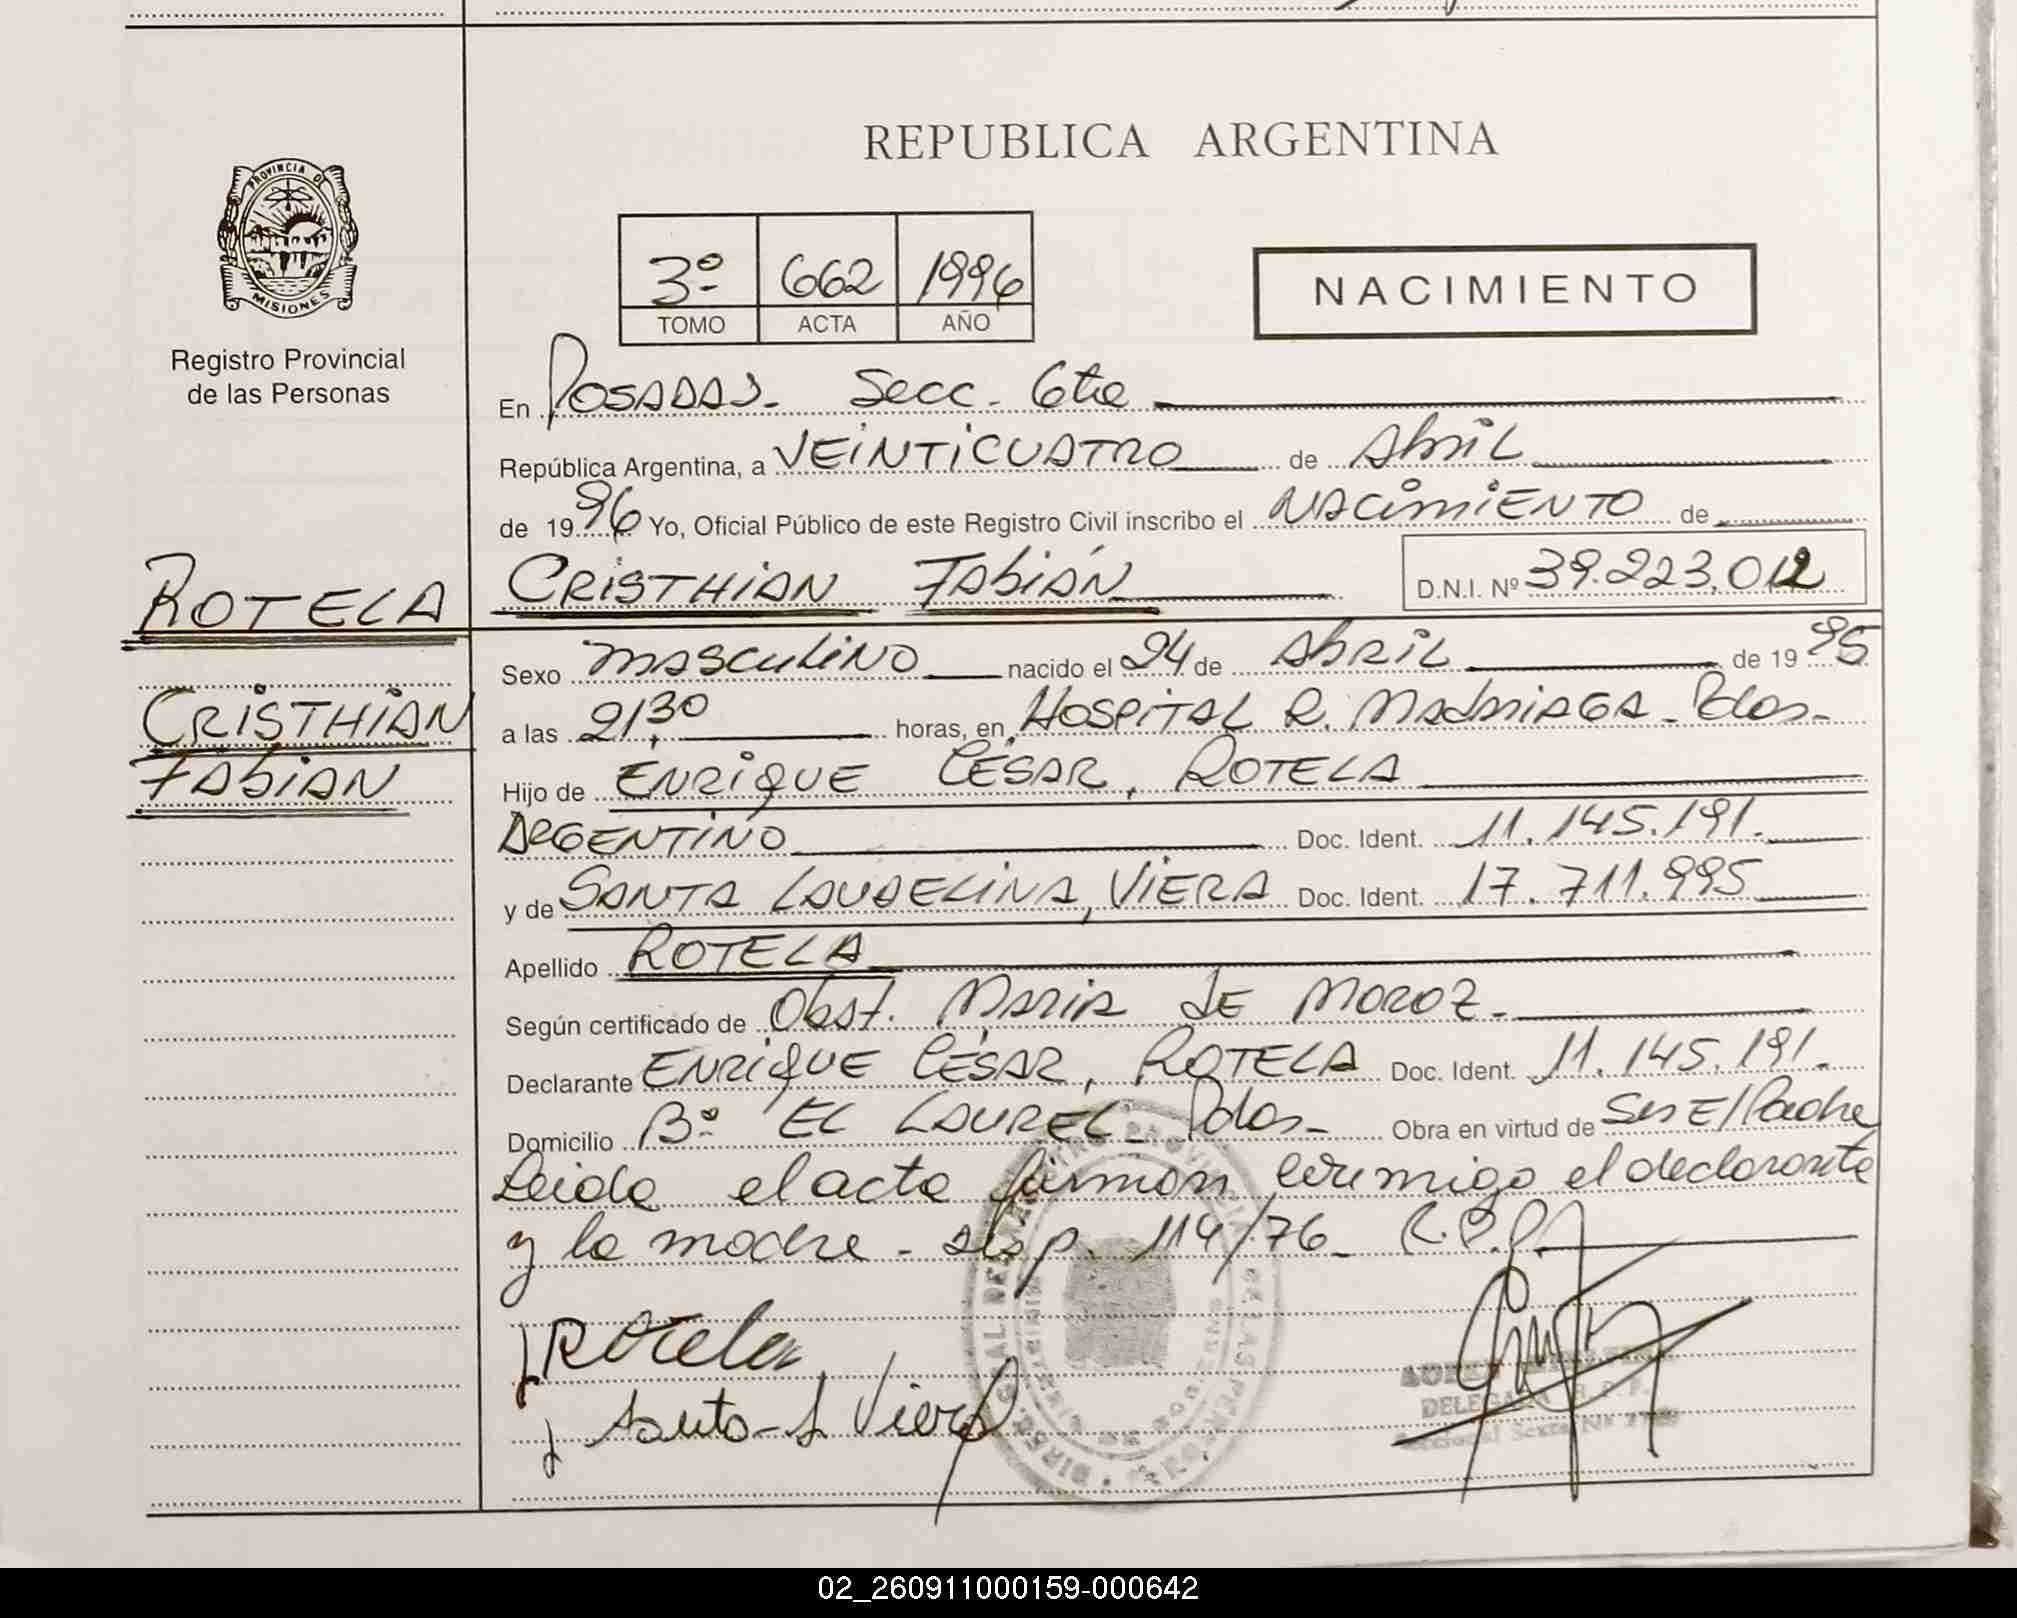 REPUBLICA ARGENTINA
PROVINCIA DE
MISIONES
Registro Provincial
de las Personas
3º 662 1996
TOMO ACTA AÑO
NACIMIENTO
En POSADAS - Secc. 6ta
República Argentina, a VEINTICUATRO de Abril
de 1996 Yo, Oficial Público de este Registro Civil inscribo el NACIMIENTO de
ROTELA
CRISTHIAN
FABIAN
CRISTHIAN FABIÁN D.N.I. Nº 39.223.012
Sexo MASCULINO nacido el 24 de Abril de 1995
a las 21,30 horas, en HOSPITAL R. MADARIAGA - Pdas -
Hijo de ENRIQUE CÉSAR, ROTELA
ARGENTINO Doc. Ident. 11.145.191.
y de SANTA LAUDELINA, VIERA Doc. Ident. 17.711.995
Apellido ROTELA
Según certificado de Obst. MARIA DE MOROZ -
Declarante ENRIQUE CÉSAR, ROTELA Doc. Ident. 11.145.191.
Domicilio Bº EL LAUREL - Pdas - Obra en virtud de Ser E/Padre
Leida el acta firman conmigo el declarante
y la madre - Disp. 114/76 - R.P.P.
Rotela
Santa L Viera
DELEGADA R.P.P.
02_260911000159-000642